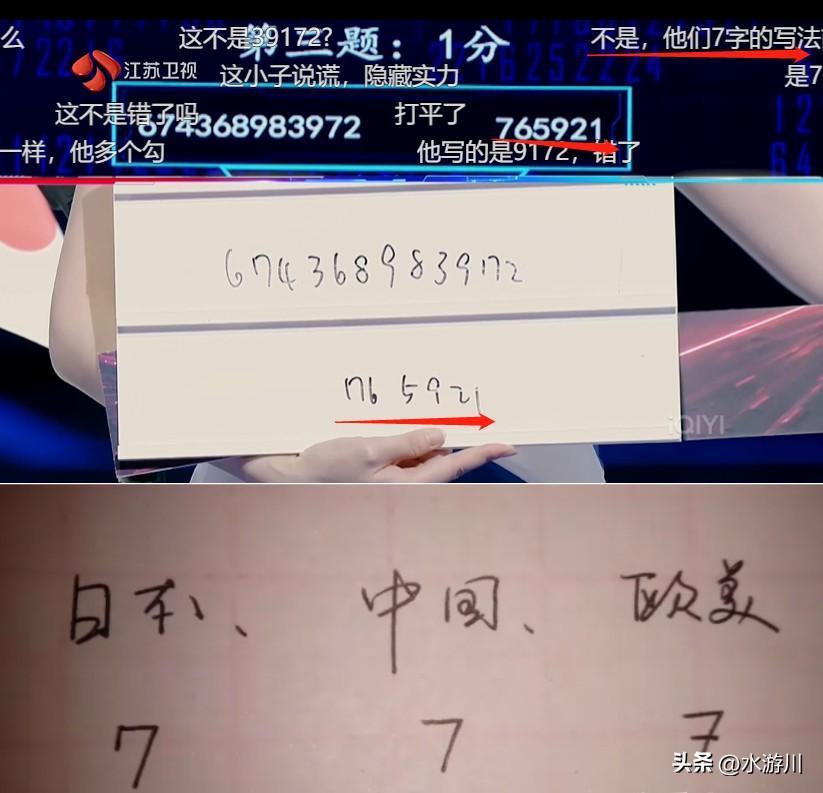 么
这不是39172?
第二题：1分
不是，他们7字的写法
江苏卫视
这小子说谎，隐藏实力
是7
这不是错了吗
打平了
674368983972
765921
一样，他多个勾
他写的是9172，错了
674368983972
765921
iQIYI
日本、中国、欧美
7 7 7
头条 @水游川